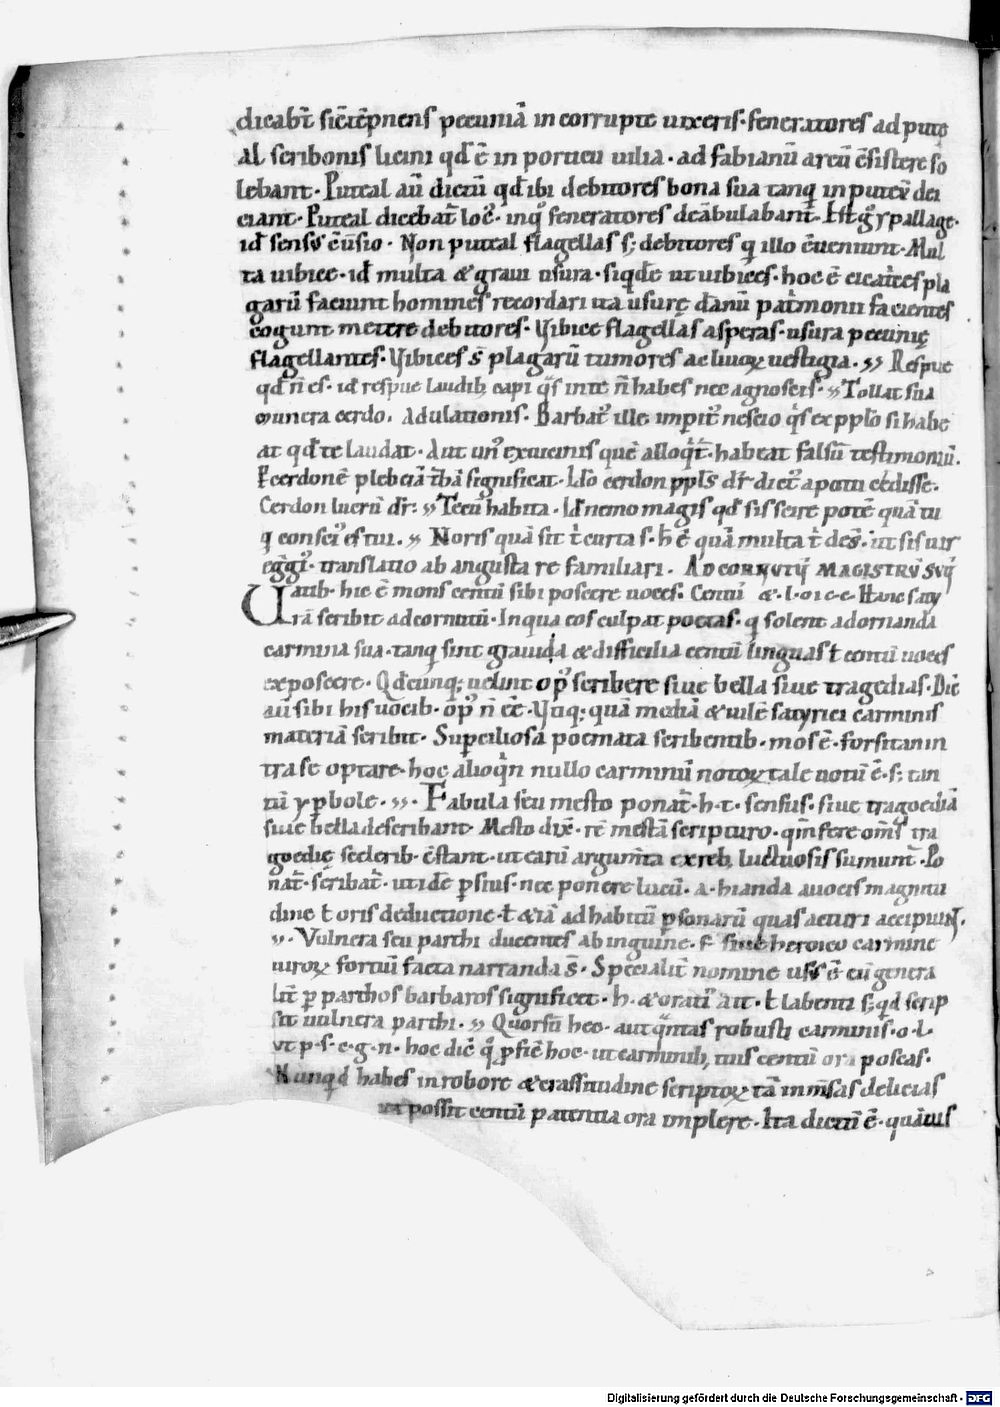 dicabt̄ sic̄ tēpnens pecuniā in corrupte uixeris· feneratores ad pute
al scribonis licini qđ ē in porticu iulia · ad fabianū arcū ɔ̄sistere so
lebant · Puteal aū dictū qđ ibi debitores bona sua tanq̄ in puteū dei
ciant · Puteal dicebat̄ loc᷒ · in quo feneratores deābulabant · Est gͦ ypallage ·
id sensus ē uersio · Non puteal flagellas s; debitores q illo ɔ̄ueniunt · Mul
ta uibice · id multa & graui usura · siqđē ut uibices · hoc ē cicatͥces pla
garū faciunt homines recordari ita usurę dānū patͥmonii facientes
cogunt metere debitores · Vibice flagellas asperas · usura pecunię
flagellantes · Vibices s̄ plagarū tumores ac liuoꝝ uestigia · Respue
qđ n̄ es · id respue laudib; capi qͥs in te n̄ habes nec agnoscis · Tollat sua
munera cerdo · adulationis · Barbat᷒ ille impit᷒ nescio qͥs ex pplo si habe
at qđ te laudat · Aut un᷒ ex uicinis quē alloqͥt̄ · habeat falsū testimoniū ·
Cerdonē plebeiā significat · Ideo cerdon
Cerdon lucrū dr̄: Tecū habita · Id nemo magis qđ sis scire potē quā tu
q conscius es tui · Noris quā sit t̄ curta s · h̄ ē quā multa t̄ des̄ · ut sis uir
egͥgi᷒ · translatio ab angusta re familiari · AD CORNVTŪ MAGISTRŪ SVŪ
Vatib · hic ē mons centū sibi poscere uoces: Centū &· l · o i c · c · Hanc saty
rā scribit ad cornutū · In qua eos culpat poetas · q solent adornanda
carmina sua · tanq̄ sint grauida & difficilia centū linguas t̄ centū uoces
exposcere · Qđcunq; uelint op᷒ scribere siue bella siue tragedias · Dic̄
aū sibi his uocib · op᷒ n̄ ēē · Utiq; quā mediā & uilē satyrici carminis
materiā scribit · Superciliosa poemata scribentib · mos ē · forsitan in
tra se optare · hoc alioqͥn nullo carminū notoꝝ tale uotū ē · s; tan
tū yp̄bole · Fabula seu mesto ponat̄ · h · t · sensus · siue tragoediā
siue bella describant · Mesto dix̄ · rē mestā scripturo · qm̄ fere om̄s tra
goedię scelerib · ɔ̄stant · ut earū argum̄ta ex reb; luctuosis sumunt̄ · Po
nat̄ · scribat̄ · ut idē ꝑsius · nec ponere lucū · A · hianda a uocis magnitu
dine t̄ oris deductione · t̄ &iā ad habitū ꝑsonarū quas actori accipiuNt ·
· Vulnera seu parthi ducentes ab inguine · siue heroico carmine
uiroꝝ fortiū facta narranda s̄ · Specialit̄ nomine usus ē cū genera
lit̄ ꝑ parthos barbaros significet · h · & orati᷒ ait · t̄ labenti s; qđ scrip
sit uulnera parthi · Quorsū hec · aut qͣntas robusti carminis · o · l ·
vt p · s · c · g · n · hoc dic̄ q ꝑfic̄ hoc · ut carminib; tuis centū ora poscas ·
Nunqͥd habes in robore & crassitudine scriptoꝝ tā inm̄sas delicias
ut possit centū patentia ora implere · Ita dictū ē · quāuis
Digitalisierung gefördert durch die Deutsche Forschungsgemeinschaft - DFG